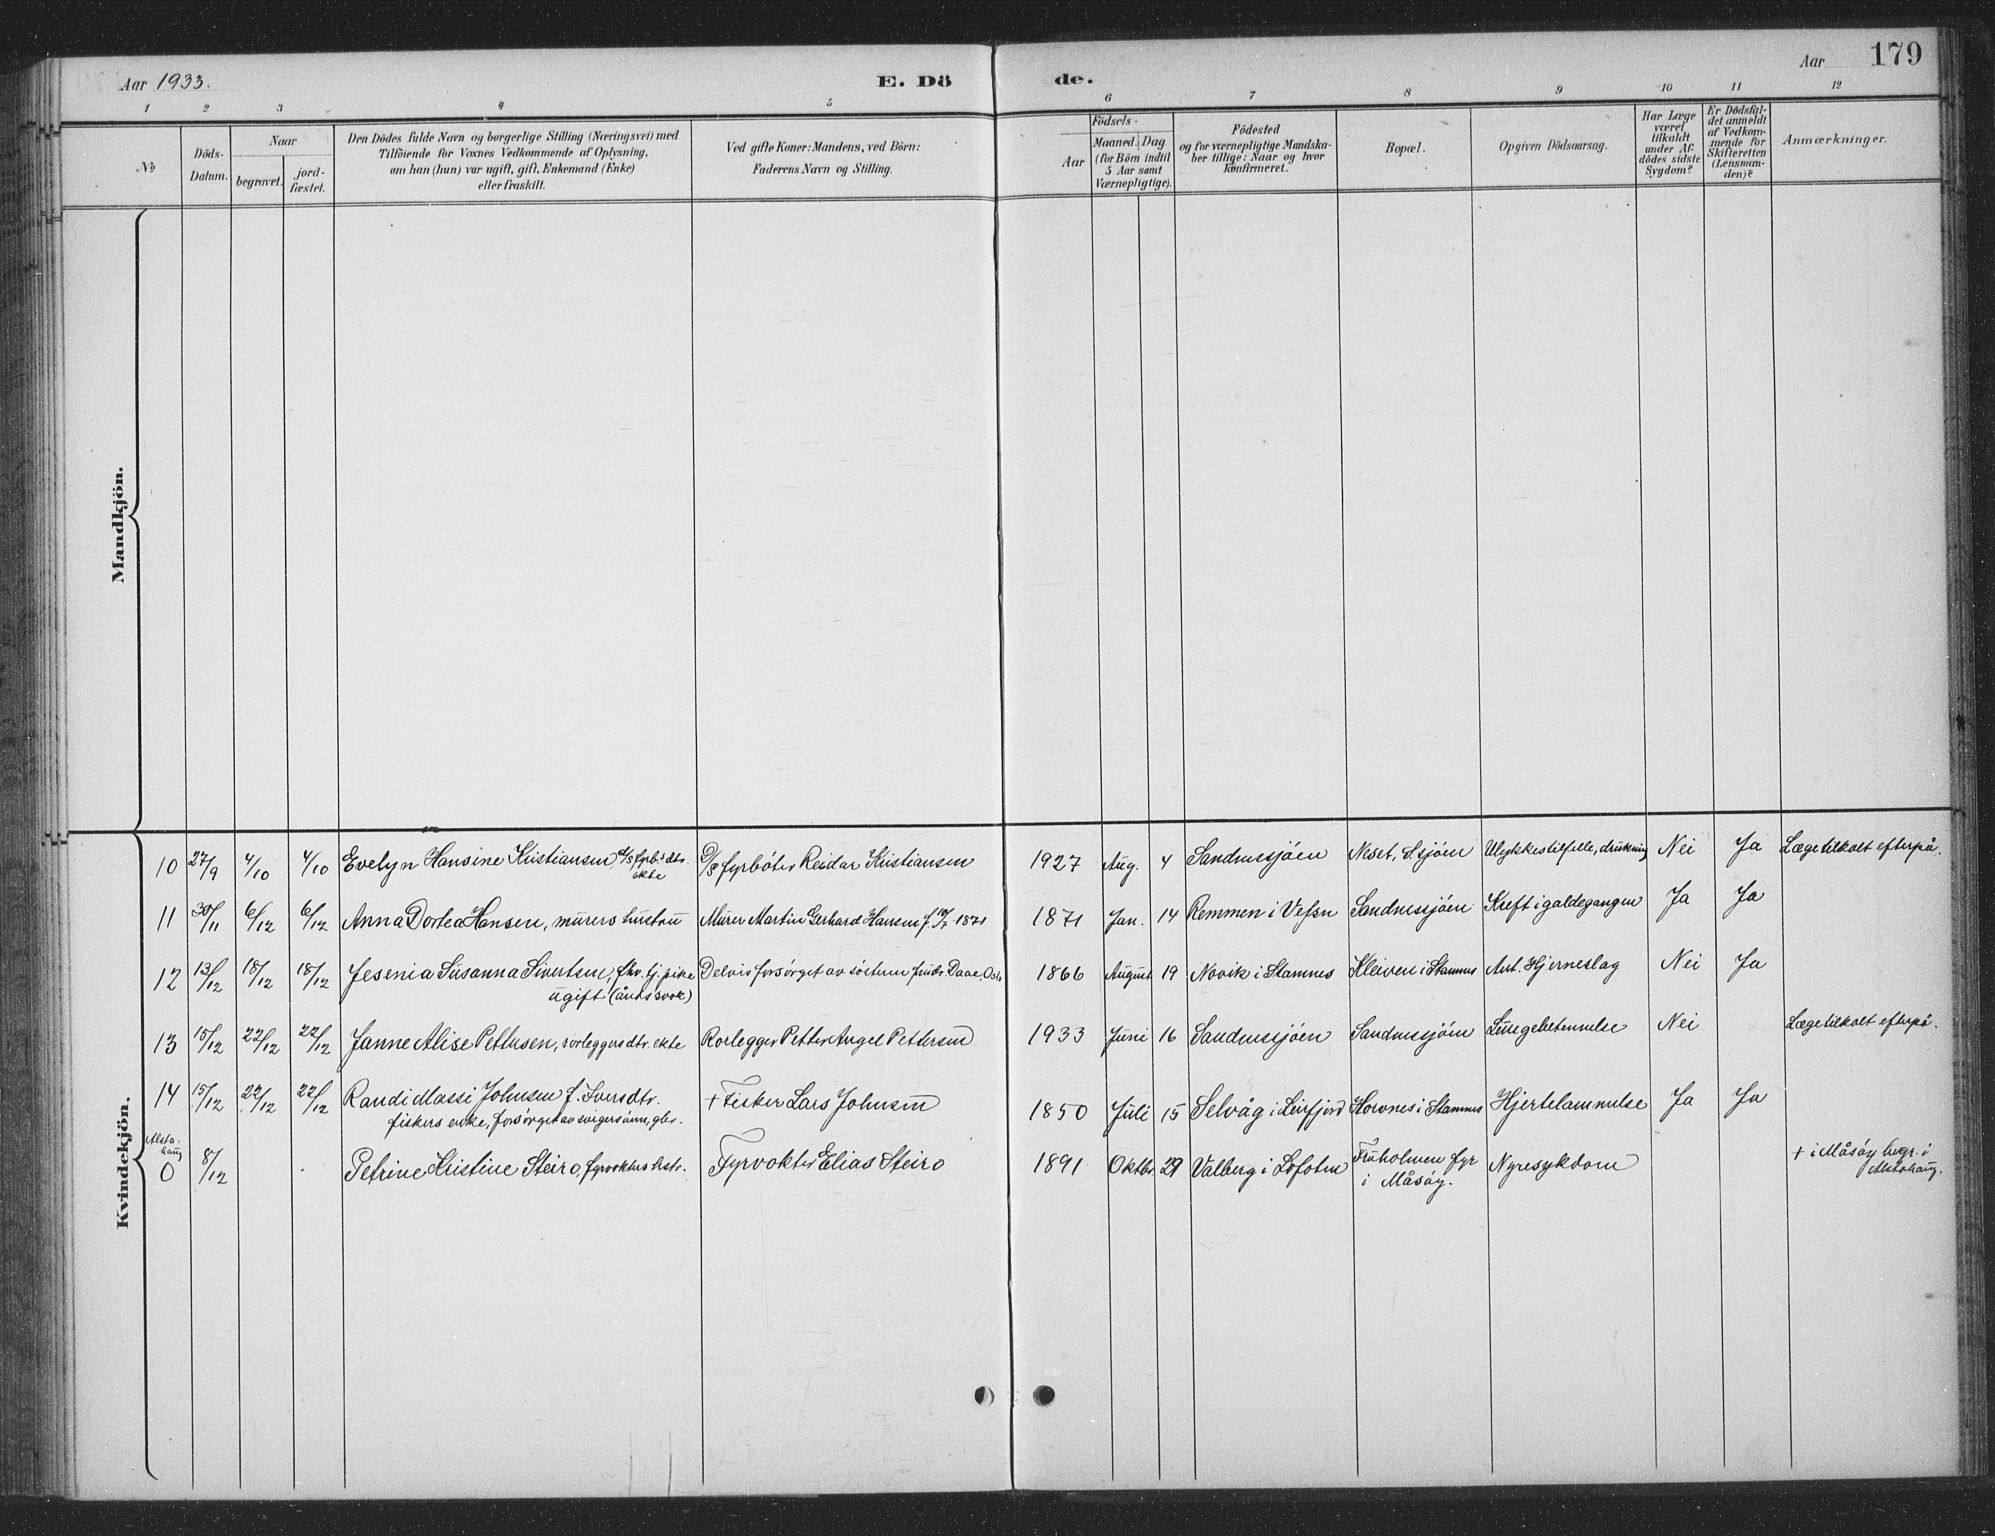 Aar 1933.
E. Dö
de.
Aar
179
1 2 3 4 5 6 7 8 9 10 11 12
No
Döds-
Datum.
Naar
begravet.
jord-
fæstet.
Den Dödes fulde Navn og borgerlige Stilling (Næringsvei) med
Tilföiende for Voxnes Vedkommende af Oplysning,
om han (hun) var ugift, gift, Enkemand (Enke)
eller fraskilt.
Ved gifte Koner: Mandens, ved Börn:
Faderens Navn og Stilling.
Födsels-
Aar
Maaned. Dag
(for Börn indtil
5 Aar samt
Værnepligtige).
Födested
og for værnepligtige Mandska-
ber tillige: Naar og hvor
konfirmeret.
Bopæl.
Opgiven Dödsaarsag.
Har Læge
været
tilkaldt
under Af-
dødes sidste
Sygdom?
Er Dödsfal-
det anmeldt
af Vedkom-
mende for
Skifteretten
(Lensman-
den)?
Anmærkninger.
Mandkjön.
Kvindekjön.
10 27/9 4/10 4/10 Evelyn Hansine Kristiansen d/s fyrb's dtr. D/s fyrbøter Reidar Kristiansen 1927 Aug. 4 Sandnessjöen Neset, S.sjöen Ulykkestilfelle, drukning Nei Ja Læge tilkalt efterpå.
ekte
11 30/11 6/12 6/12 Anna Dortea Hansen, murers hustru Murer Martin Gerhard Hansen f. 10/7 1871 1871 Jan. 14 Remmen i Vefsn Sandnessjöen Kreft i galdegangen Ja Ja
12 13/12 18/12 18/12 Jesenia Susanna Sivertsen, fhv. tj. pike Delvis forsörget av söstrene Daae, Oslo 1866 August 19 Novik i Stamnes Kleiven i Stamnes Ant. Hjerneslag Nei Ja
ugift (åndssvak)
13 15/12 22/12 22/12 Janne Alise Pettersen, rørleggers dtr. ekte Rørlegger Petter Angel Pettersen 1933 Juni 16 Sandnessjöen Sandnessjöen Lungebetennelse Nei Læge tilkalt efterpå.
14 15/12 22/12 22/12 Randi Massi Johnsen f. Iversdtr. + Fisker Lars Johnsen 1850 Juli 15 Selvåg i Leirfjord Horvnes i Stamnes Hjertelammelse Ja Ja
fiskers enke, forsörget av svigersönn,
Alsta-
haug
0 8/12 Petrine Kristine Steiro, fyrvokters hstr. Fyrvokter Elias Steiro 1891 Oktbr. 29 Valberg i Lofoten Fruholmen fyr Nyresykdom + i Måsöy begr. i
i Måsöy.
Alstahaug.